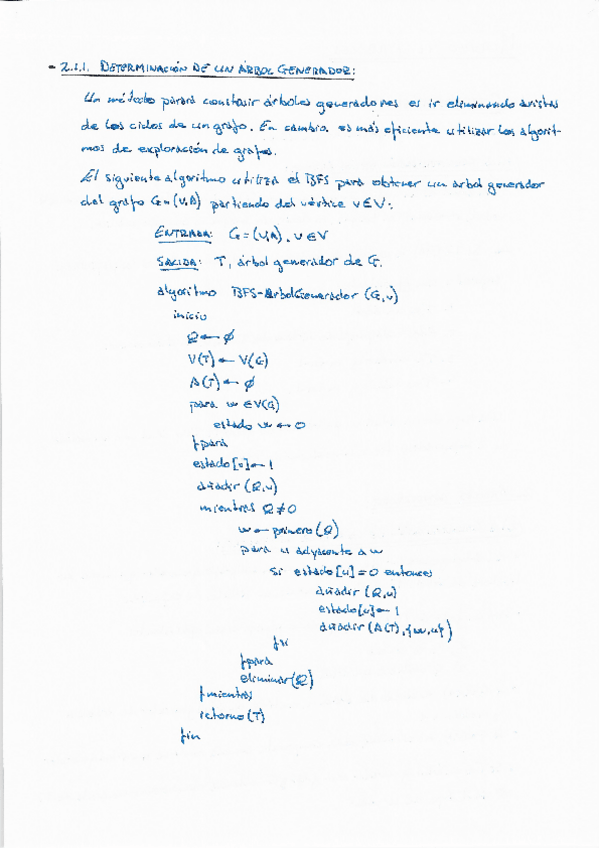 - 2.1.1. DETERMINACIÓN DE UN ÁRBOL GENERADOR:
Un método parará construir árboles generadores es ir eliminando aristas
de los ciclos de un grafo. En cambio, es más eficiente utilizar los algorit-
mos de exploración de grafos.
El siguiente algoritmo utiliza el BFS para obtener un árbol generador
del grafo G=(V,A) partiendo del vértice v∈V:
ENTRADA: G=(V,A), v∈V
SALIDA: T, árbol generador de G.
algoritmo BFS-ArbolGenerador (G,v)
inicio
Q ← ∅
V(T) ← V(G)
A(T) ← ∅
para w ∈ V(G)
estado w ← 0
fpara
estado[v] ← 1
añadir (Q,v)
mientras Q≠0
w ← primero(Q)
para u adyacente a w
si estado[u]=0 entonces
añadir (Q,u)
estado[u] ← 1
añadir (A(T),{w,u})
fsi
fpara
eliminar(Q)
fmientras
retorno(T)
fin